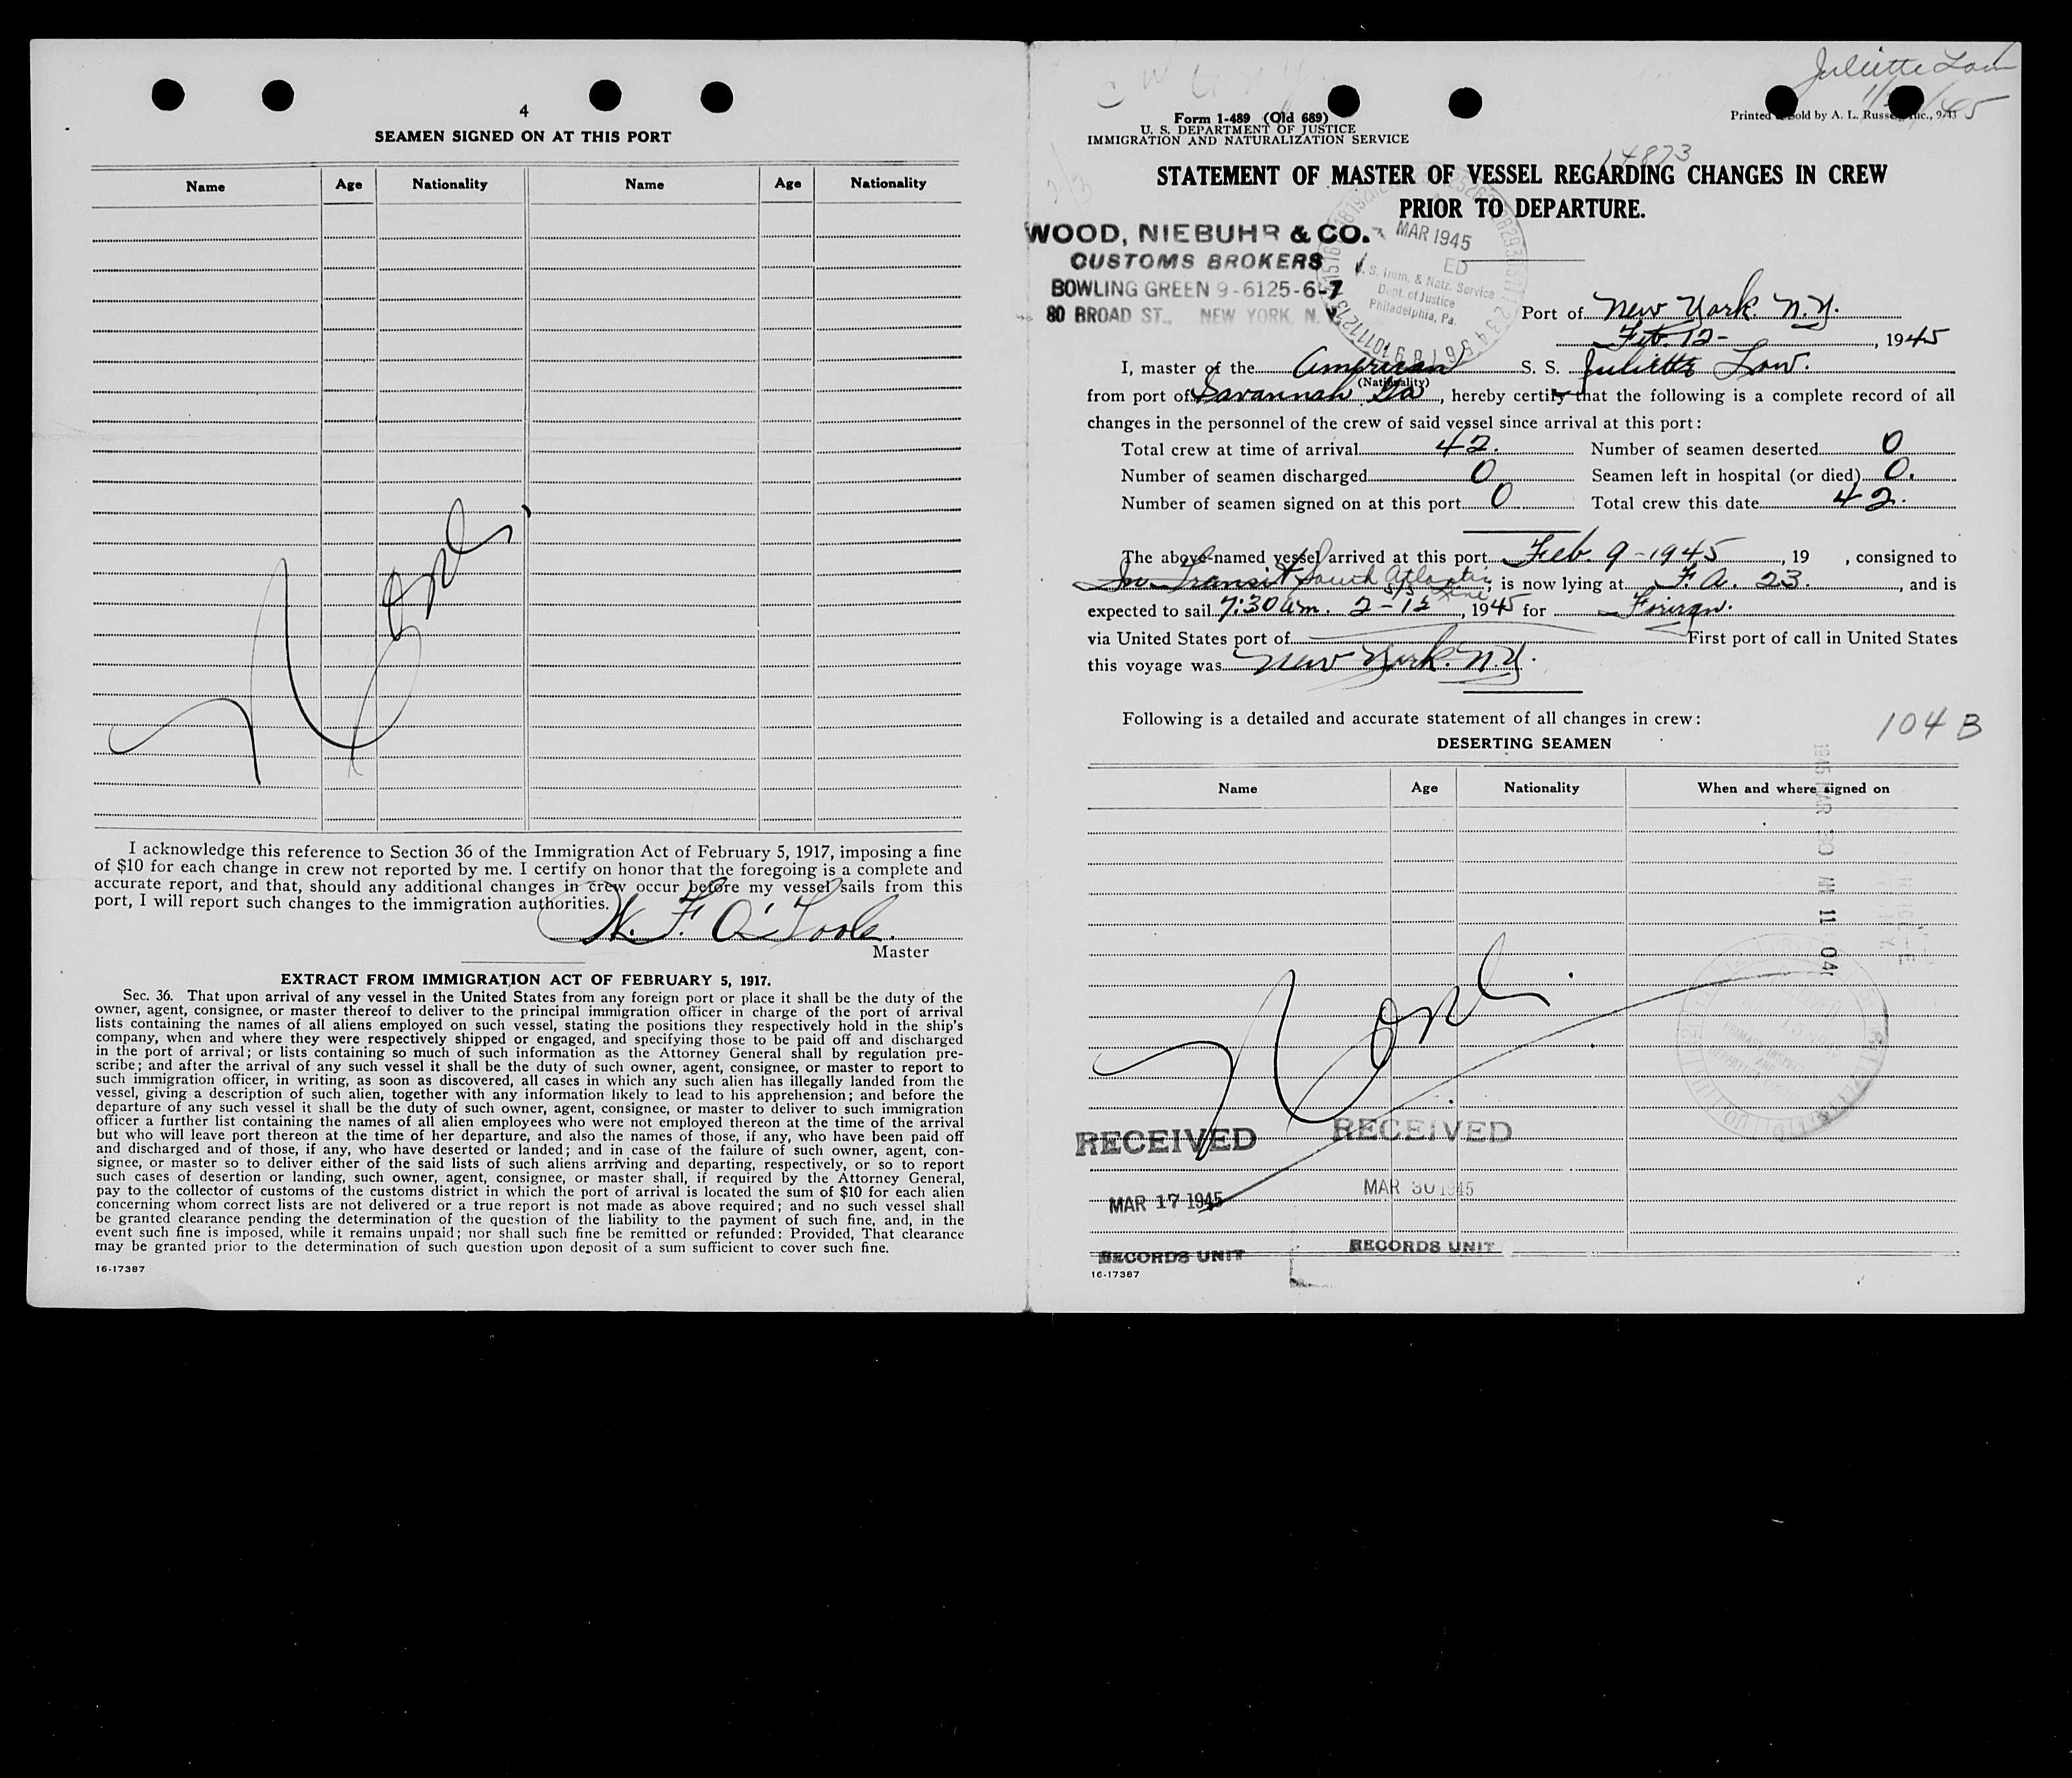 4
SEAMEN SIGNED ON AT THIS PORT
Name Age Nationality Name Age Nationality
None
I acknowledge this reference to Section 36 of the Immigration Act of February 5, 1917, imposing a fine
of $10 for each change in crew not reported by me. I certify on honor that the foregoing is a complete and
accurate report, and that, should any additional changes in crew occur before my vessel sails from this
port, I will report such changes to the immigration authorities.
W. F. O'Toole.
Master
EXTRACT FROM IMMIGRATION ACT OF FEBRUARY 5, 1917.
Sec. 36. That upon arrival of any vessel in the United States from any foreign port or place it shall be the duty of the
owner, agent, consignee, or master thereof to deliver to the principal immigration officer in charge of the port of arrival
lists containing the names of all aliens employed on such vessel, stating the positions they respectively hold in the ship's
company, when and where they were respectively shipped or engaged, and specifying those to be paid off and discharged
in the port of arrival; or lists containing so much of such information as the Attorney General shall by regulation pre-
scribe; and after the arrival of any such vessel it shall be the duty of such owner, agent, consignee, or master to report to
such immigration officer, in writing, as soon as discovered, all cases in which any such alien has illegally landed from the
vessel, giving a description of such alien, together with any information likely to lead to his apprehension; and before the
departure of any such vessel it shall be the duty of such owner, agent, consignee, or master to deliver to such immigration
officer a further list containing the names of all alien employees who were not employed thereon at the time of the arrival
but who will leave port thereon at the time of her departure, and also the names of those, if any, who have been paid off
and discharged and of those, if any, who have deserted or landed; and in case of the failure of such owner, agent, con-
signee, or master so to deliver either of the said lists of such aliens arriving and departing, respectively, or so to report
such cases of desertion or landing, such owner, agent, consignee, or master shall, if required by the Attorney General,
pay to the collector of customs of the customs district in which the port of arrival is located the sum of $10 for each alien
concerning whom correct lists are not delivered or a true report is not made as above required; and no such vessel shall
be granted clearance pending the determination of the question of the liability to the payment of such fine, and, in the
event such fine is imposed, while it remains unpaid; nor shall such fine be remitted or refunded: Provided, That clearance
may be granted prior to the determination of such question upon deposit of a sum sufficient to cover such fine.
16-17387
Juliette Low
Form 1-489 (Old 689)
Printed Sold by A. L. Russell, Inc., 9-43
U. S. DEPARTMENT OF JUSTICE
IMMIGRATION AND NATURALIZATION SERVICE
14873
STATEMENT OF MASTER OF VESSEL REGARDING CHANGES IN CREW
PRIOR TO DEPARTURE.
WOOD, NIEBUHR & CO.
CUSTOMS BROKERS
BOWLING GREEN 9-6125-6-7
80 BROAD ST., NEW YORK, N. Y.
MAR 1945
U. S. Imm. & Natz. Service
Dept. of Justice
Philadelphia, Pa.
Port of New York. N.Y.
Feb. 12- , 1945
I, master of the American S. S. Juliette Low.
(Nationality)
from port of Savannah Ga , hereby certify that the following is a complete record of all
changes in the personnel of the crew of said vessel since arrival at this port:
Total crew at time of arrival 42. Number of seamen deserted 0
Number of seamen discharged 0 Seamen left in hospital (or died) 0.
Number of seamen signed on at this port 0 Total crew this date 42.
The above-named vessel arrived at this port Feb. 9-1945 , 19 , consigned to
In Transit South Atlantic Line, is now lying at F. A. 23. , and is
expected to sail 7:30 am. 2-12 , 1945 for Foreign.
via United States port of First port of call in United States
this voyage was New York. N.Y.
Following is a detailed and accurate statement of all changes in crew:
104 B
DESERTING SEAMEN
Name Age Nationality When and where signed on
1945 MAR 30 AM 11 04
None.
RECEIVED RECEIVED
MAR 17 1945 MAR 30 1945
RECORDS UNIT RECORDS UNIT
16-17387